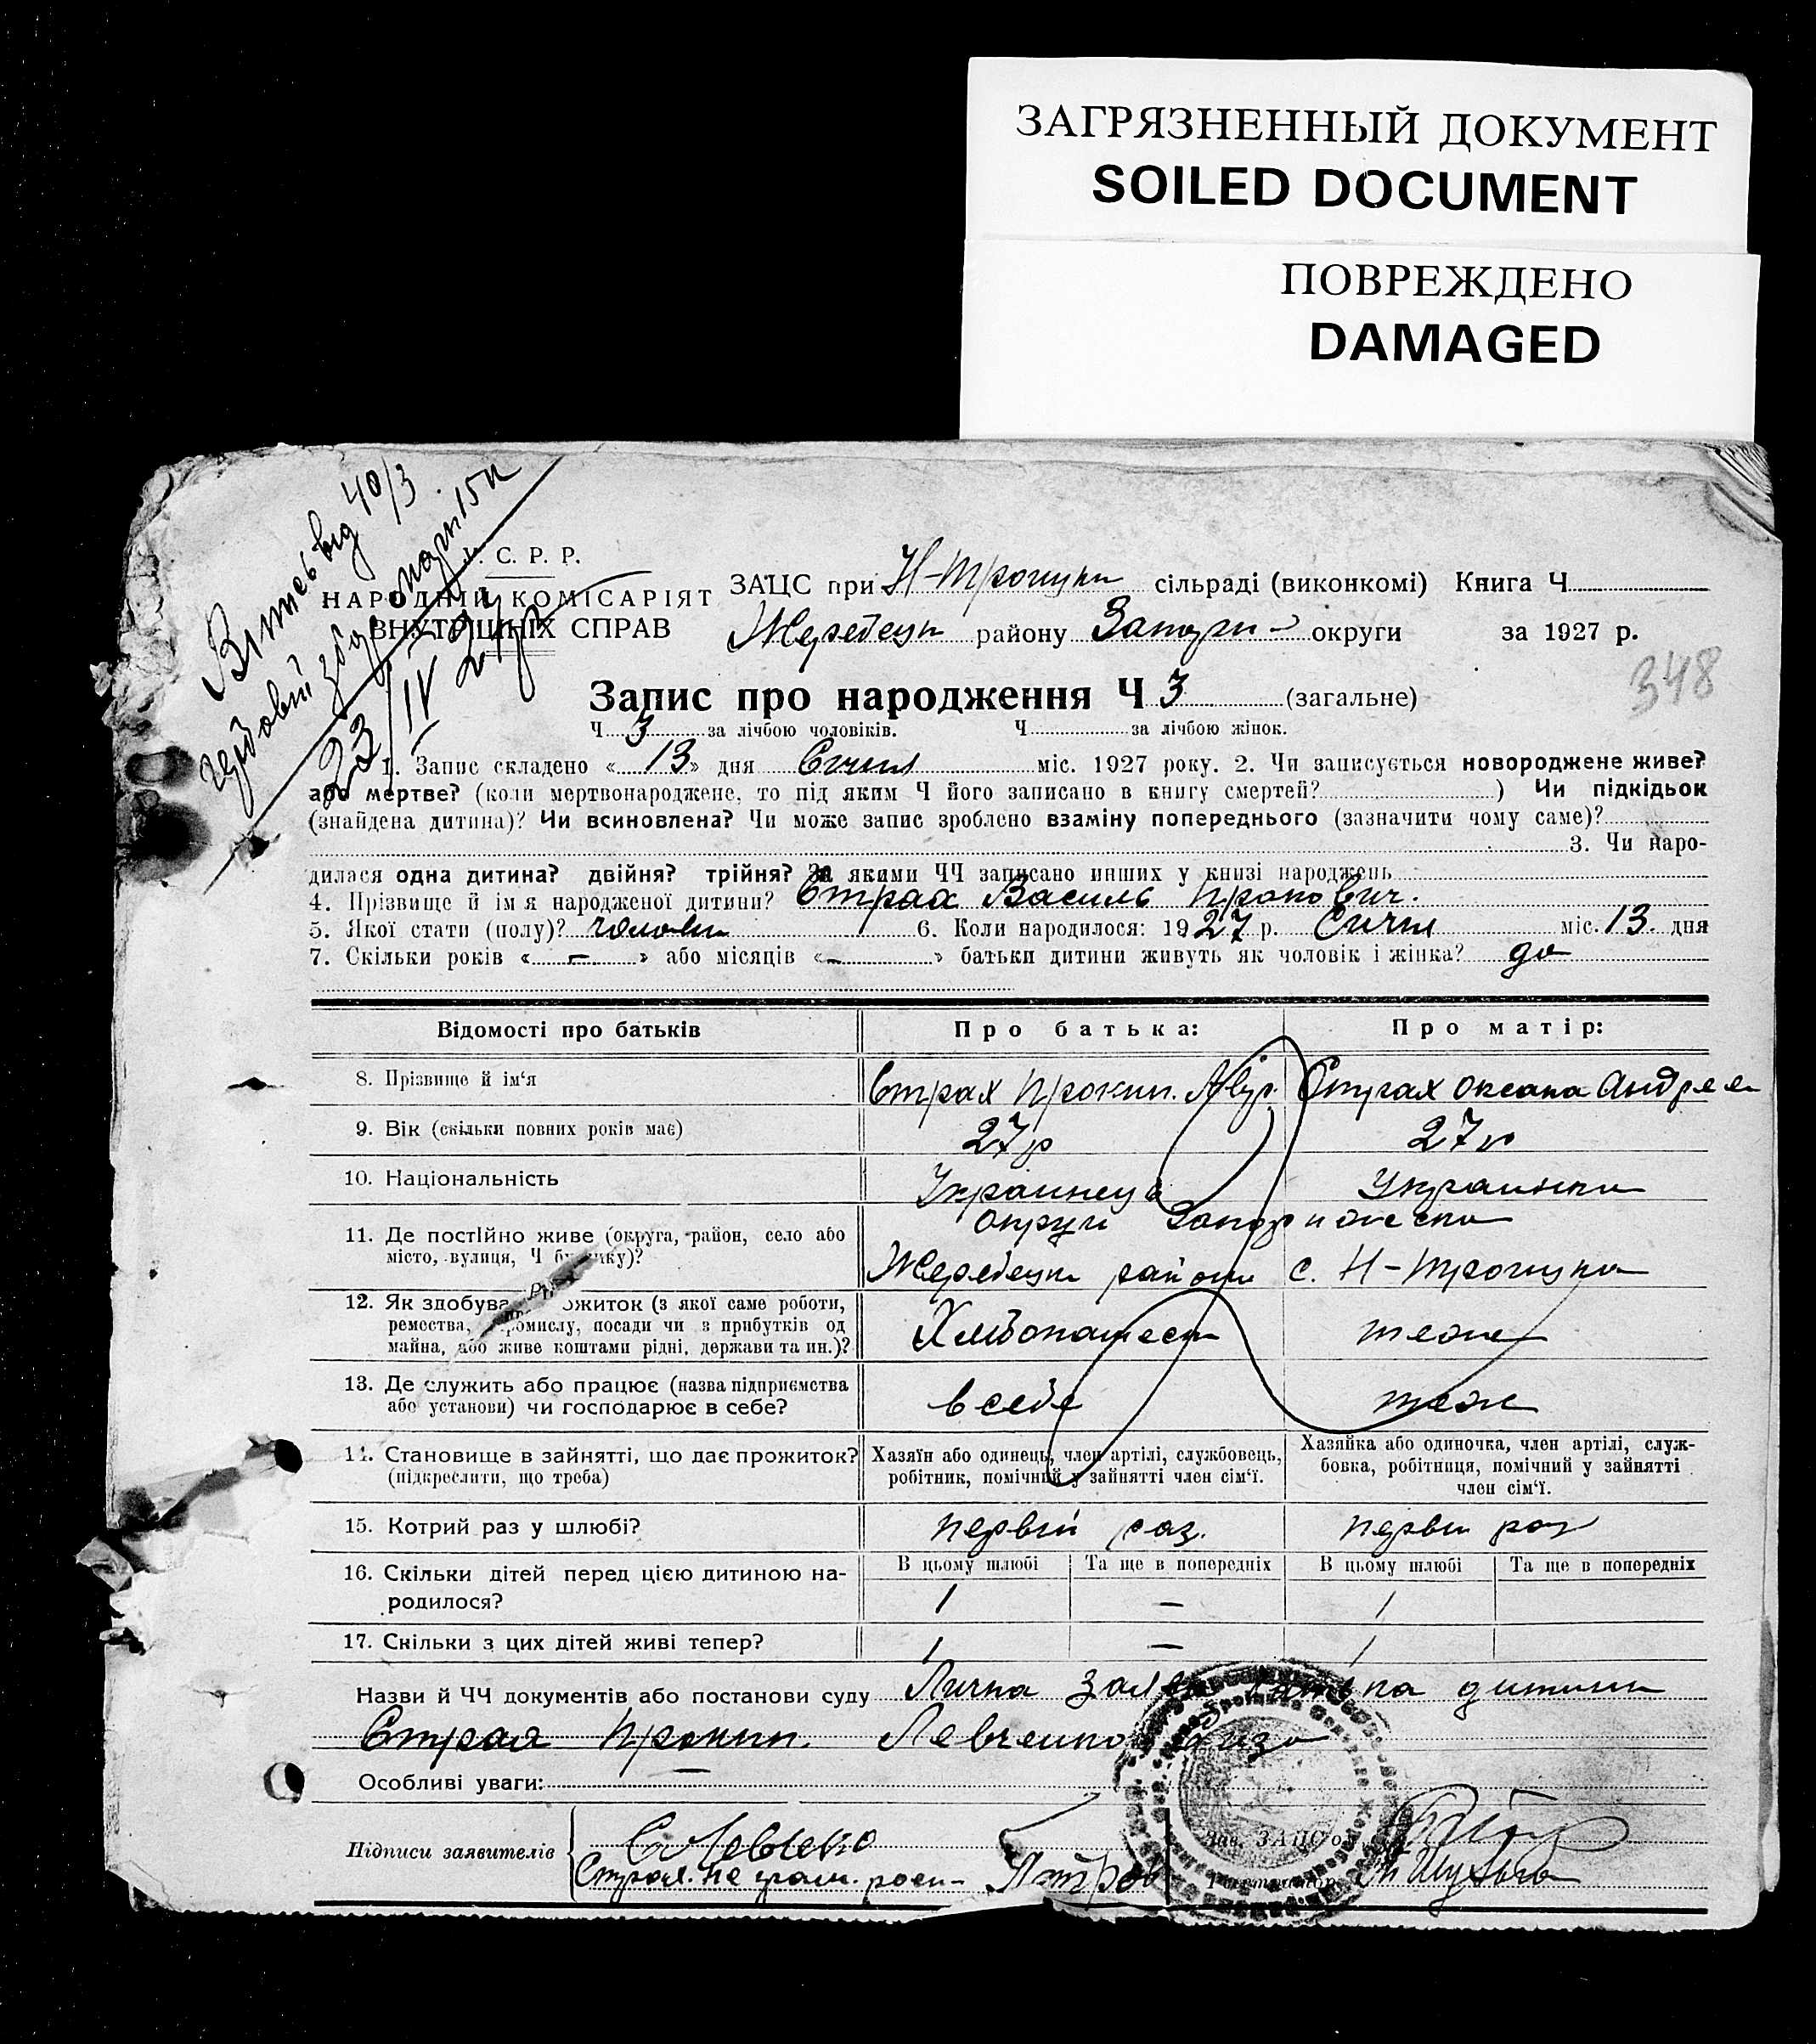 ЗАГРЯЗНЕННЫЙ ДОКУМЕНТ
SOILED DOCUMENT
ПОВРЕЖДЕНО
DAMAGED
від 40/3
15к
23/IV 27р
С. Р. Р.
НАРОДНІЙ КОМІСАРІЯТ
ВНУТРІШНІХ СПРАВ
ЗАЦС при Н-Трощуки сільраді (виконкомі) Книга Ч
Жеребецьк району Запоріж округи за 1927 р.
348
Запис про народження Ч 3 (загальне)
Ч 3 за лічбою чоловіків. Ч за лічбою жінок.
1. Запис складено « 13 » дня Січня міс. 1927 року. 2. Чи записується новороджене живе?
або мертве? (коли мертвонароджене, то під яким Ч його записано в книгу смертей? ) Чи підкідьок
(знайдена дитина)? Чи всиновлена? Чи може запис зроблено взаміну попереднього (зазначити чому саме)?
3. Чи наро-
дилася одна дитина? двійня? трійня? За якими ЧЧ записано инших у книзі народжень
4. Прізвище й ім'я народженої дитини? Страх Василь Пропович.
5. Якої стати (полу)? чоловік 6. Коли народилося: 1927 р. Січня міс. 13 дня
7. Скільки років « — » або місяців « — » батьки дитини живуть як чоловік і жінка? до
Відомості про батьків Про батька: Про матір:
8. Прізвище й ім'я Страх Прокип. Страх Оксана Андреев
9. Вік (скільки повних років має) 27р 27р
10. Національність Украинець Украинка
11. Де постійно живе (округа, район, село або округи Запорижска
місто, вулиця, Ч будинку)? Жеребецьк району с. Н-Трощука
12. Як здобуває прожиток (з якої саме роботи,
ремества, промислу, посади чи з прибутків од Хлібопашест теже
майна, або живе коштами рідні, держави та ин.)?
13. Де служить або працює (назва підприємства
або установи) чи господарює в себе? в себе теж
14. Становище в зайнятті, що дає прожиток? Хазяїн або одинець, член артілі, службовець, Хазяйка або одиночка, член артілі, служ-
(підкреслити, що треба) робітник, помічний у зайнятті член сім'ї. бовка, робітниця, помічний у зайнятті
член сім'ї.
15. Котрий раз у шлюбі? первій раз. перви раз
16. Скільки дітей перед цією дитиною на- В цьому шлюбі Та ще в попередніх В цьому шлюбі Та ще в попередніх
родилося? 1 — 1
17. Скільки з цих дітей живі тепер? 1 — 1
Назви й ЧЧ документів або постанови суду Лична батька дитини
Страх Прокип. Левченко
Особливі уваги: —
Підписи заявителів С Левченко Зав. ЗАЦС'ом
Страх не грам. роси- Реєстратор